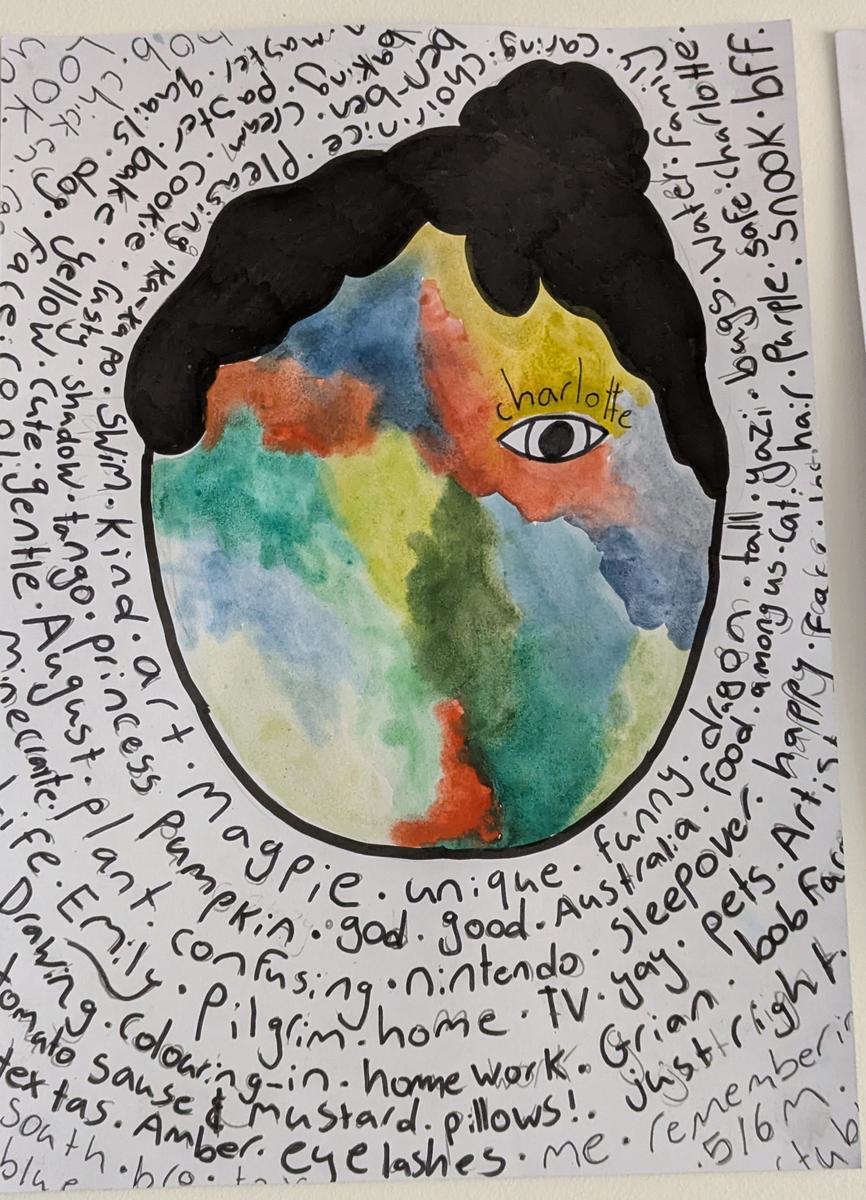 charlotte
caring. choir. nice. Pleasing. ka-karo. Swim. Kind. art. Magpie. unique. funny. dragon. tall. yazi. bugs. Water. Family.
ben-ben. cream. cookie. tasty. shadow. tango. princess pumpkin. god. good. Australia. Food. among us. Cat. hair. Purple. safe. charlotte.
baking. paster. bake. yellow. cute. gentle. August. plant. confusing. nintendo. sleepover. happy. Fake. snook. bff.
master. snails. dog. face. cool.
hob. chicks.
look.
Life. Emily. Pilgrim. home. TV. yay. pets. Artist
Drawing. colouring-in. homework. Grian. bob
tomato sause & mustard. pillows!. just right.
textas. Amber. eyelashes. me. remember
south. bro.
516M.
blue